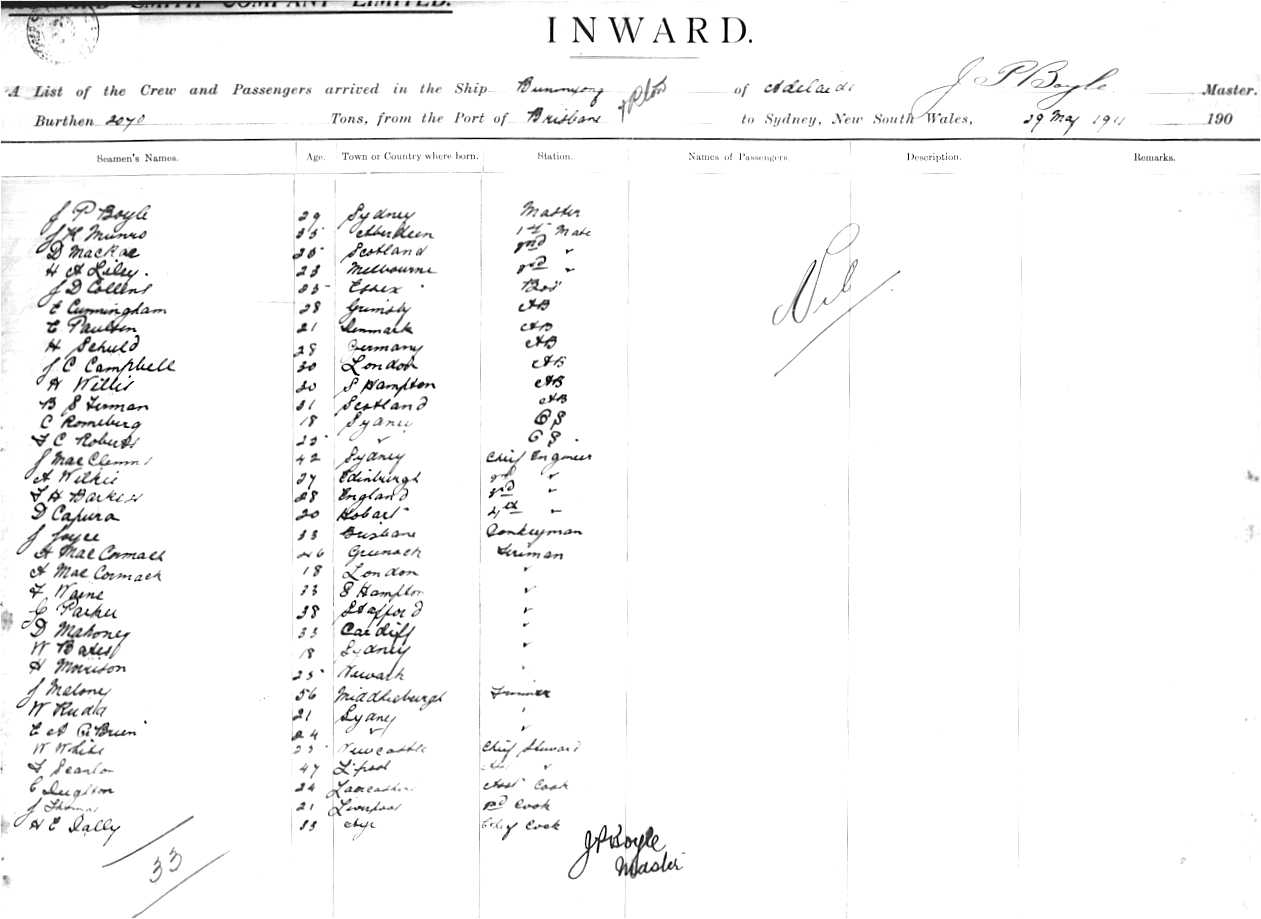 SMITH COMPANY LIMITED.
INWARD.
A List of the Crew and Passengers arrived in the Ship Buninyong of Adelaide J P Boyle Master.
Burthen 2070 Tons, from the Port of Brisbane to Sydney, New South Wales, 29 May 1911 190
Seamen's Names. Age. Town or Country where born. Station. Names of Passengers Description. Remarks.
J P Boyle 29 Sydney Master
J K Munro 35 Aberdeen 1st Mate
D MacRae 25 Scotland 2nd "
H A Lilly. 23 Melbourne "
J D Collens Essex
E Cunningham 28 Grimsby AB
C Paulsen 21 Denmark AB
H Schuld 28 Germany AB
J C Campbell 30 London AB
H Willis 20 S Hampton AB
B S Firman 31 Scotland AB
C Romeburg 18 Sydney OS
F C Roberts 22 " OS
J Mac 42 Sydney Chief Engineer
A Wilkie 27 Edinburgh 2nd "
F H Barker 28 England 3rd "
D Capura 20 Hobart 4th "
J Joyce 33 Brisbane Donkeyman
A MacCormack 26 Greenock Fireman
A MacCormack 18 London "
F Warne 33 S Hampton "
C Parker 38 Stafford "
D Mahoney 33 Cardiff "
W Bates 18 Sydney "
H Morrison 25 Newark "
J Meloney 56 Trimmer
W Rudd 21 Sydney "
E A O'Brien 24 " "
W White Newcastle Chief Steward
F Scanlon 47 L'pool "
C 24 Lancashire Asst Cook
J Thomas 21 Liverpool 2nd Cook
H E Dally 33 Chief Cook
Nil
33
J P Boyle
Master